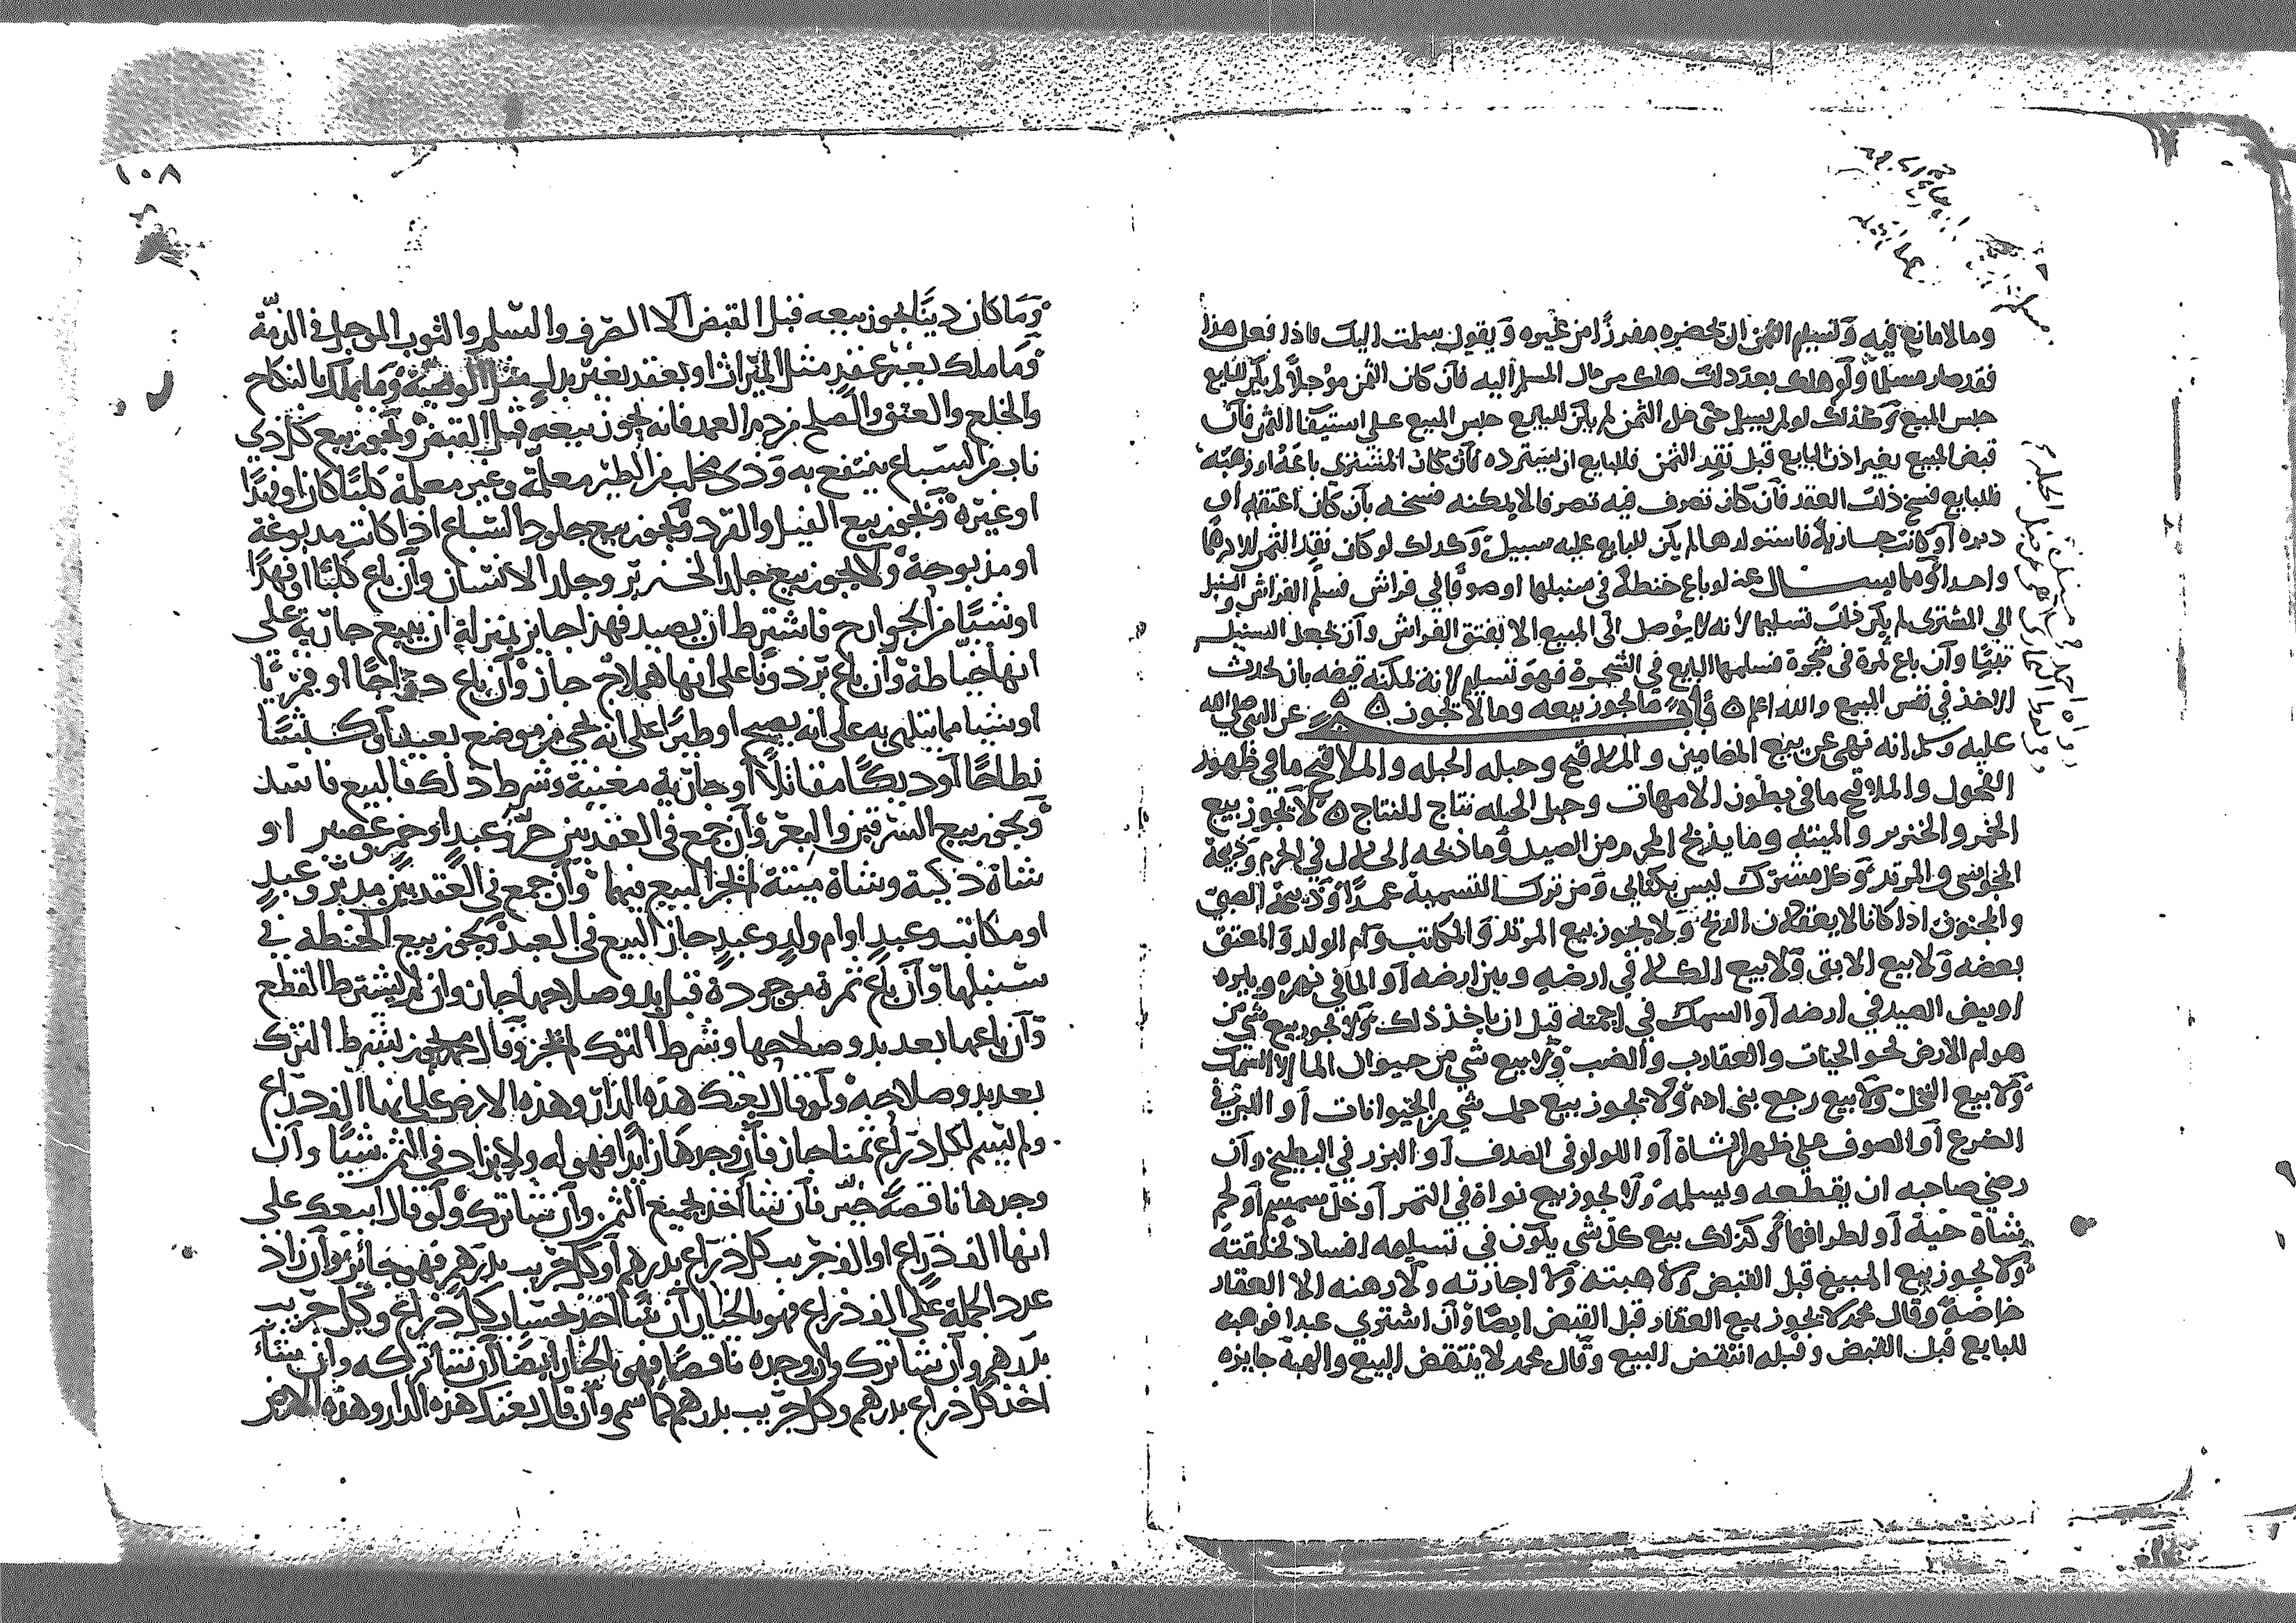 وما لا مانع فيه وتسليم الثمن ان يحضره مفرزًا من غيره ويقول سلمت اليك فاذا فعل هذا
فقد صار مسلما ولو هلك بعد ذلك هلك من مال المسلم اليه فان كان الثمن مؤجلاً لم يكن للبايع
حبس المبيع وكذلك لو لم يسلم حتى حل الثمن لم يكن للبايع حبس المبيع على استيفا الثمن فان
قبض المبيع بغير اذن البايع قبل نقد الثمن فللبايع ان يسترده فان كان المشتري باعه او وهبه
فللبايع فسخ ذلك العقد فان كان تصرف فيه تصرفا لا يمكنه فسخه بان كان اعتقه او
دبره او كانت جارية فاستولدها لم يكن للبايع عليه سبيل وكذلك لو كان نقد الثمن الا درهما
واحدا ومما يسال عنه لو باع حنطة في سنبلها او صوفا في فراش فسلم الفراش والسنبل
الي المشتري لم يكن ذلك تسليما لانه لا يوصل الى المبيع الا بفتق الفراش وان يجعل السنبل
تبنًا وان باع ثمرة في شجرة فسلمها البايع في الشجرة فهو تسليم لانه يمكنه قبضه بان يحدث
الاخذ في نفس المبيع والله اعلم باب ما يجوز بيعه وما لا يجوز عن النبي صلى الله
عليه وسلم انه نهى عن بيع المضامين والملاقيح وحبله الحبله والملاقيح ما في ظهور
الفحول والملاقيح ما في بطون الامهات وحبل الحبله نتاج النتاج لا يجوز بيع
الخمر والخنزير والميته وما يذبح المحرم من الصيد وما ذبحه الحلال في الحرم وذبيحة
المجوسي والمرتد وكل مشرك ليس بكتابي ومن ترك التسمية عمدًا وذبيحة الصبي
والمجنون اذا كانا لا يعقلان الذبح ولا يجوز بيع المرتد والمكاتب وام الولد والمعتق
بعضه ولا بيع الابق ولا بيع الكلا في ارضه وبير ارضه او الما في نهره وبيره
او بيض الصيد في ارضه او السمك في اجمته قبل ان ياخذ ذلك ولا يجوز بيع شي من
هوام الارض نحو الحيات والعقارب والضب ولا بيع شي من حيوان الما الا السمك
ولا بيع النحل ولا بيع رجيع بني ادم ولا يجوز بيع حمل شي من الحيوانات او اللبن في
الضرع او الصوف على ظهر الشاة او اللولو في الصدف او البزر في البطيخ وان
رضي صاحبه ان يقطعه ويسلمه ولا يجوز بيع نواة في التمر او خل سمسم او لحم
شاة حية او اطرافها وكذلك بيع كل شي يكون في تسليمه افساد لخلقته
ولا يجوز بيع المبيع قبل القبض ولا هبته ولا اجازته ولا رهنه الا العقار
خاصة وقال محمد لا يجوز بيع العقار قبل القبض ايضًا وان اشتري عبدا فوهبه
للبايع قبل القبض وقبله انتقض البيع وقال محمد لا ينتقض البيع والهبة جايزه
١٠٨
وما كان دينًا يجوز بيعه قبل القبض الا الصرف والسلم والثوب الموجل في الذمة
وما ملك بغير عقد مثل الميراث او بعقد بغير بدل مثل الوصية وما يملك بالنكاح
والخلع والعتق والصلح من دم العمد فانه يجوز بيعه قبل القبض ويجوز بيع كل ذي
ناب من السباع ينتفع به وذي مخلب من الطير معلمة وغير معلمة كلبًا كان او فهدًا
او غيره ويجوز بيع الفيل والقرد ويجوز بيع جلود السباع اذا كانت مدبوغة
او مذبوحة ولا يجوز بيع جلد الخنزير وجلد الانسان وان باع كلبًا او فهدًا
او شيًا من الجوارح فاشترط ان يصيد فهذا جايز بمنزلة ان يبيع جارية على
انها خياطة وان باع برذونًا على انها هملاج جاز وان باع دراجًا او قمريًا
او شيا مما يتلهى به على انه يصيح او طيرًا على انه يجي من موضع بعيد او كبشًا
نطاحًا او ديكًا مقاتلاً او جارية مغنية وشرط ذلك فالبيع فاسد
ويجوز بيع السرقين والبعر وان جمع في العقد بين حر وعبد او خمر وعصير او
شاة ذكية وشاة ميتة لم يجز البيع فيهما وان جمع في العقد بين مدبر وعبد
او مكاتب وعبد او ام ولد وعبد جاز البيع في العبد ويجوز بيع الحنطة في
سنبلها وان باع ثمرة موجودة قبل بدو صلاحها جاز وان لم يشترط القطع
وان باعها بعد بدو صلاحها وشرط الترك لم يجز وقال محمد يجوز بشرط الترك
بعد بدو صلاحه ولو قال بعتك هذه الدار وهذه الارض على انها الف ذراع
ولم يسم لكل ذراع ثمنا جاز فان وجدها زايدًا فهو له ولا يزاد في الثمن شيًا وان
وجدها ناقصة خير فان شا اخذ بجميع الثمن وان شا ترك ولو قال ابيعك على
انها الف ذراع او الف جريب كل ذراع بدرهم او كل جريب بدرهم فهو جائز وان زاد
عدد الجملة على الف ذراع فهو بالخيار ان شا اخذ حساب كل ذراع وكل جريب
بدرهم وان شا ترك وان وجده ناقصًا فهو بالخيار ايضًا ان شا تركه وان شاء
اخذ كل ذراع بدرهم وكل جريب بدرهم كما سمى وان قال بعتك هذه الدار وهذه الارض